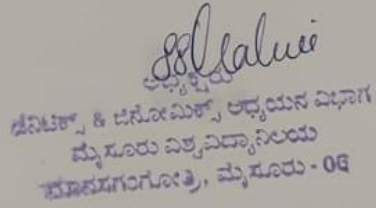 ಅಧ್ಯಕ್ಷರು
ಜೆನಿಟಿಕ್ಸ್ & ಜಿನೋಮಿಕ್ಸ್ ಅಧ್ಯಯನ ವಿಭಾಗ
ಮೈಸೂರು ವಿಶ್ವವಿದ್ಯಾನಿಲಯ
ಮಾನಸಗಂಗೋತ್ರಿ, ಮೈಸೂರು - 06